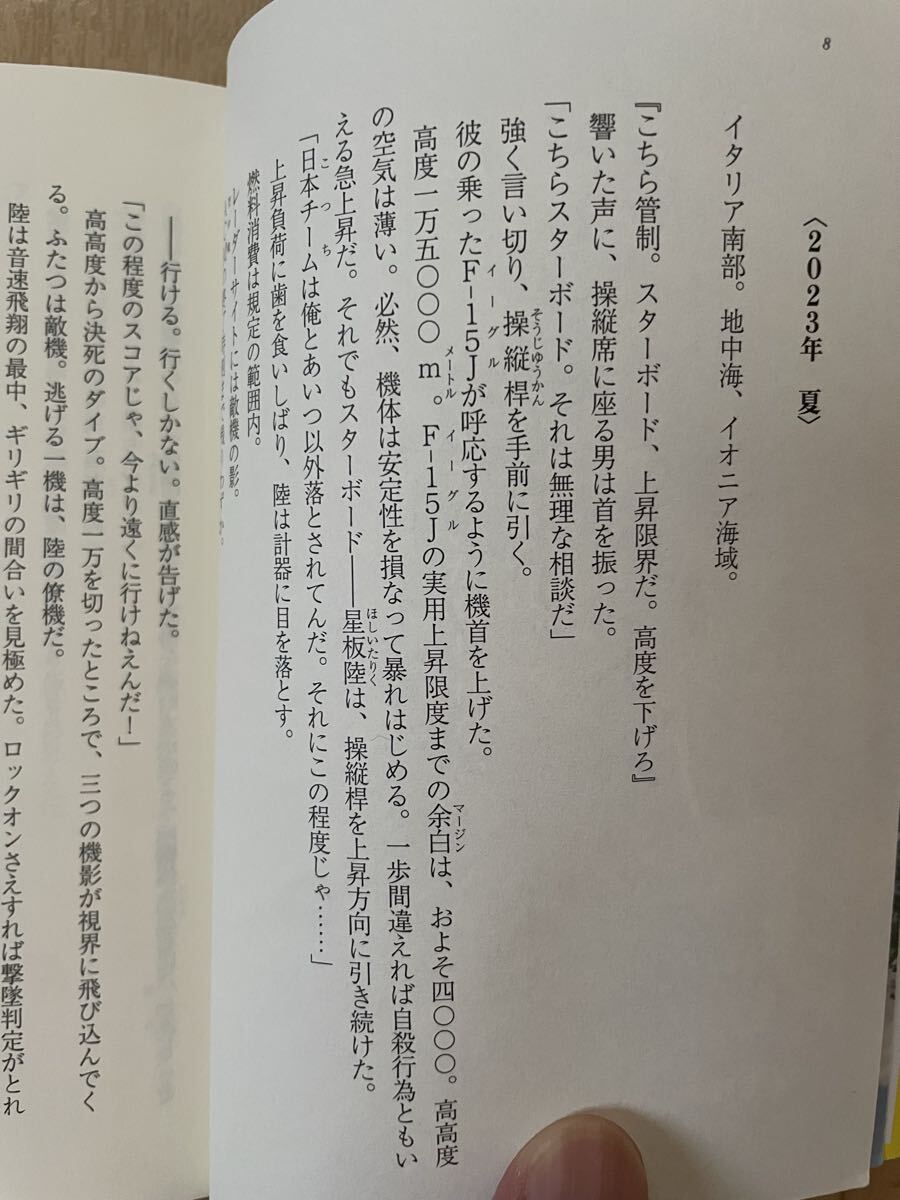 8
〈2023年 夏〉
イタリア南部。地中海、イオニア海域。
『こちら管制。スターボード、上昇限界だ。高度を下げろ』
響いた声に、操縦席に座る男は首を振った。
「こちらスターボード。それは無理な相談だ」
強く言い切り、操縦桿を手前に引く。
そうじゆうかん
彼の乗ったF-15Jが呼応するように機首を上げた。
イーグル
高度一万五〇〇〇m。F-15Jの実用上昇限度までの余白は、およそ四〇〇〇。高高度
メートル イーグル マージン
の空気は薄い。必然、機体は安定性を損なって暴れはじめる。一歩間違えれば自殺行為ともい
える急上昇だ。それでもスターボード――星板陸は、操縦桿を上昇方向に引き続けた。
ほしいたりく
「日本チームは俺とあいつ以外落とされてんだ。それにこの程度じゃ……」
こつち
上昇負荷に歯を食いしばり、陸は計器に目を落とす。
燃料消費は規定の範囲内。
レーダーサイトには敵機の影。
――行ける。行くしかない。直感が告げた。
「この程度のスコアじゃ、今より遠くに行けねえんだ!」
高高度から決死のダイブ。高度一万を切ったところで、三つの機影が視界に飛び込んでく
る。ふたつは敵機。逃げる一機は、陸の僚機だ。
陸は音速飛翔の最中、ギリギリの間合いを見極めた。ロックオンさえすれば撃墜判定がとれ